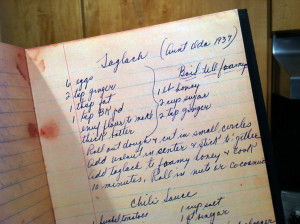 Taglach (Aunt Ida 1937)
6 eggs
2 tsp ginger
1 tbsp fat
1 tsp BK pd
enuf flour to make
thick batter
Boil till foamy
1 lb honey
2 cup sugar
2 tsp ginger
Roll out dough & cut in small circles
add walnut in center & stick together
Add taglach to foamy honey & cook
10 minutes. Roll in nuts or cocoanut
Chili Sauce
tomatoes
1 cup
sugar